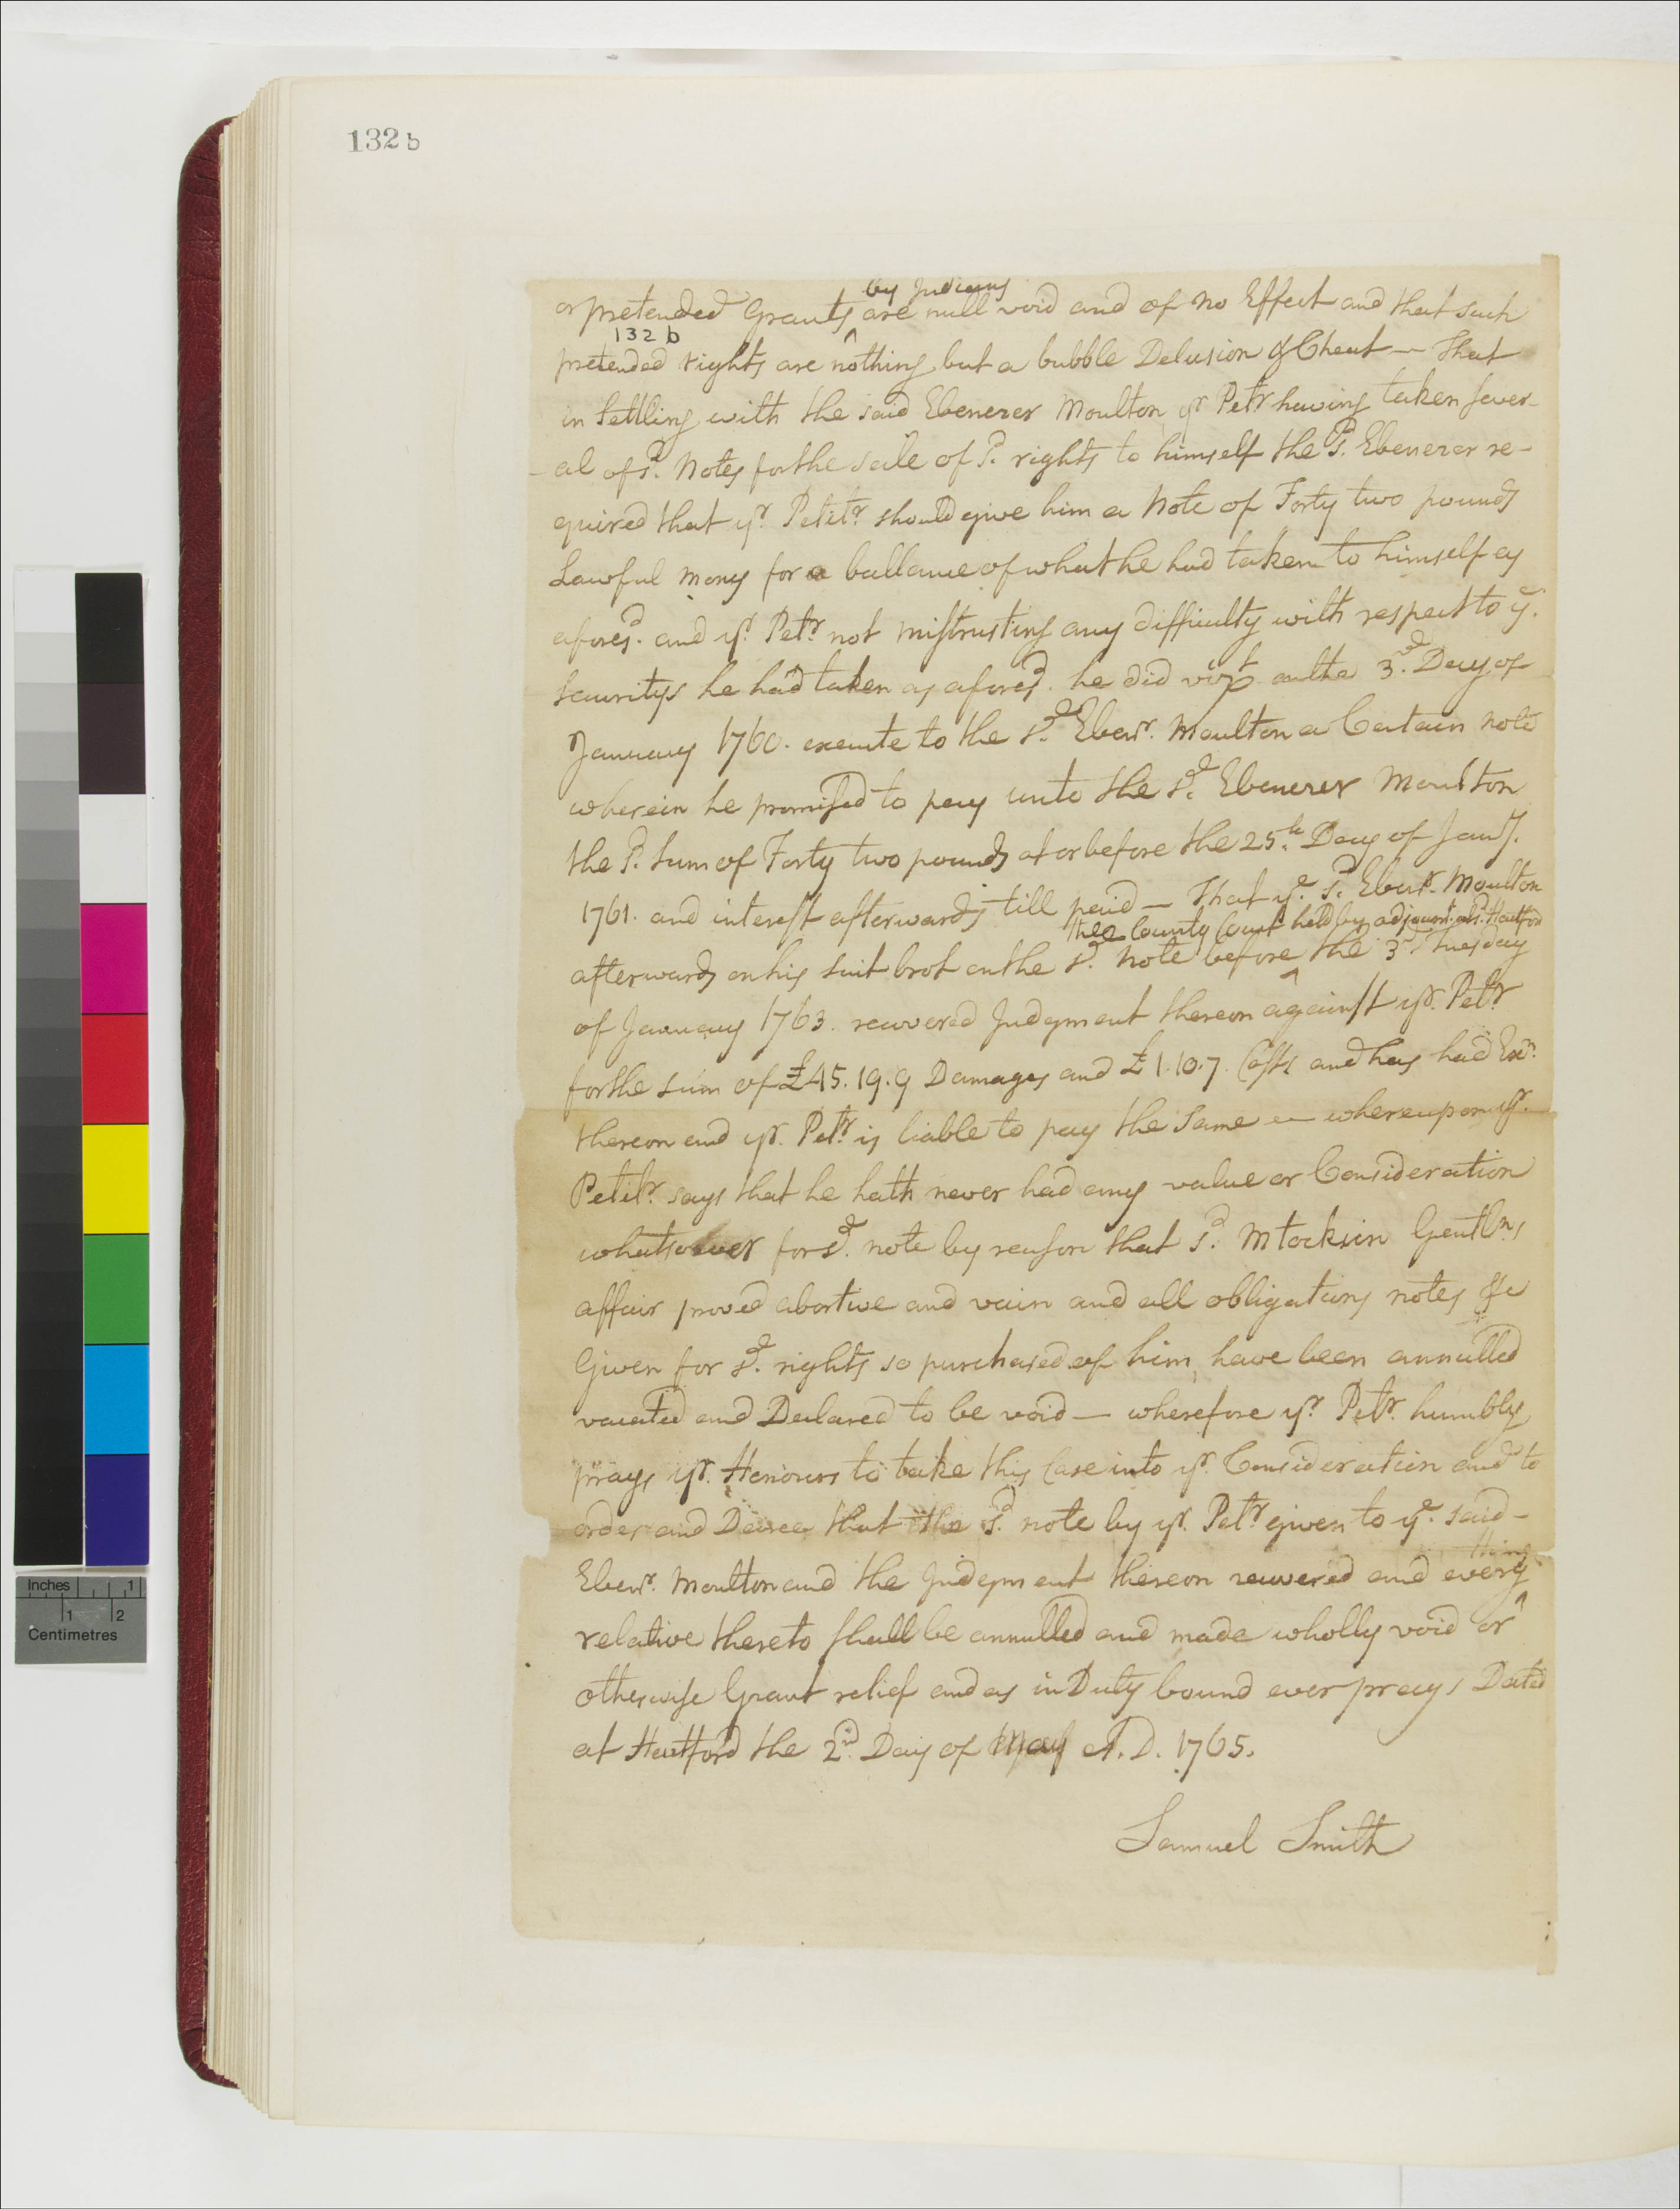 132 b
or pretended Grants by Indians are null void and of no Effect and that such
132 b
pretended rights are nothing but a bubble Delusion & Cheat — that
in Settling with the said Ebenezer Moulton yr. Petr. having taken sever-
-al of sd. Notes for the sale of sd. rights to himself the sd. Ebenezer re-
quired that yr. Petitr. should give him a Note of Forty two pounds
Lawful mony for a ballance of what he had taken to himself as
aforesd. and yr. Petr. not mistrusting any difficulty with respect to ye.
securitys he had taken as aforesd. he did vizt. on the 3rd. Day of
January 1760. execute to the sd. Ebenr. Moulton a Certain note
wherein he promised to pay unto the sd. Ebenezer Moulton
the sd. sum of Forty two pounds at or before the 25th. Day of Jany.
1761. and interest afterwards till paid — That ye. sd. Ebenr. Moulton
the County Court held by adjournt. at sd. Hartford
afterwards on his suit brot on the sd. note before the 3rd. Tuesday
of January 1763. recovered Judgment thereon against yr. Petr.
for the sum of £45.19.9 Damages and £1.10.7. Costs and has had Exn.
thereon and yr. Petr. is liable to pay the same — whereupon yr.
Petitr. says that he hath never had any value or Consideration
whatsoever for sd. note by reason that sd. Mtocksin Gentlns
affair proved abortive and vain and all obligations notes &c
Given for sd. rights so purchased of him, have been annulled
vacated and Declared to be void — wherefore yr. Petr. humbly
prays yr. Honours to take this Case into yr. Consideration and to
order and Decree that the sd. note by yr. Petr. given to ye. said -
Ebenr. Moulton and the Judgment thereon recovered and every thing
relative thereto shall be annulled and made wholly void or
otherwise Grant relief and as in Duty bound ever prays Dated
at Hartford the 2nd. Day of May A.D. 1765.
Samuel Smith
Inches 1
1 2
Centimetres